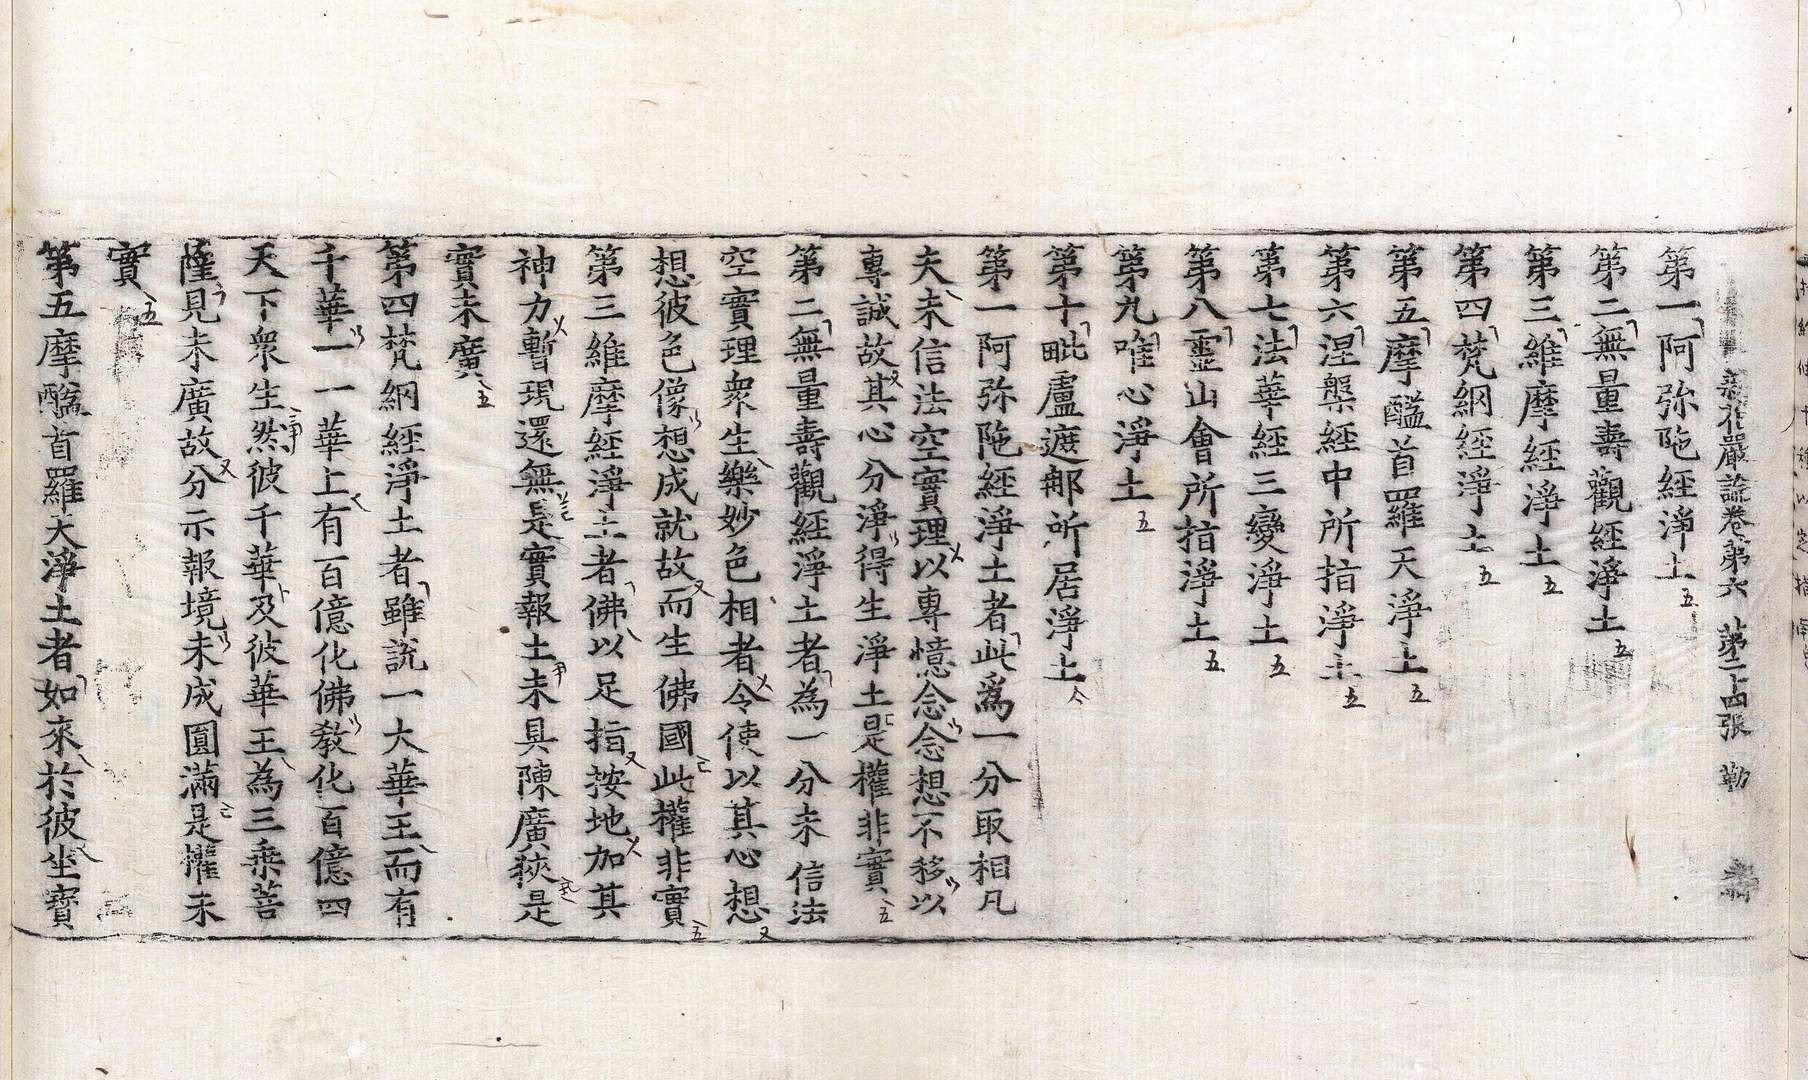 華嚴論卷第六 第二十四張 勒
第一阿弥陁經淨土五
第二無量壽觀經淨土五
第三維摩經淨土五
第四梵網經淨土五
第五摩醯首羅天淨土五
第六涅槃經中所指淨土五
第七法華經三變淨土五
第八靈山會所指淨土五
第九唯心淨土五
第十毗盧遮那所居淨土
第一阿弥陁經淨土者此爲一分取相凡
夫未信法空實理以專憶念念想不移以
專誠故其心分淨得生淨土是權非實五
第二無量壽觀經淨土者為一分未信法
空實理衆生樂妙色相者令使以其心想
想彼色像想成就故而生佛國此權非實五
第三維摩經淨土者佛以足指按地加其
神力暫現還無是實報土未具陳廣狹是
實未廣五
第四梵網經淨土者雖說一大華王而有
千華一一華上有百億化佛教化百億四
天下衆生然彼千華及彼華王為三乘菩
薩見未廣故分示報境未成圓滿是權未
實五
第五摩醯首羅天淨土者如來於彼坐寶